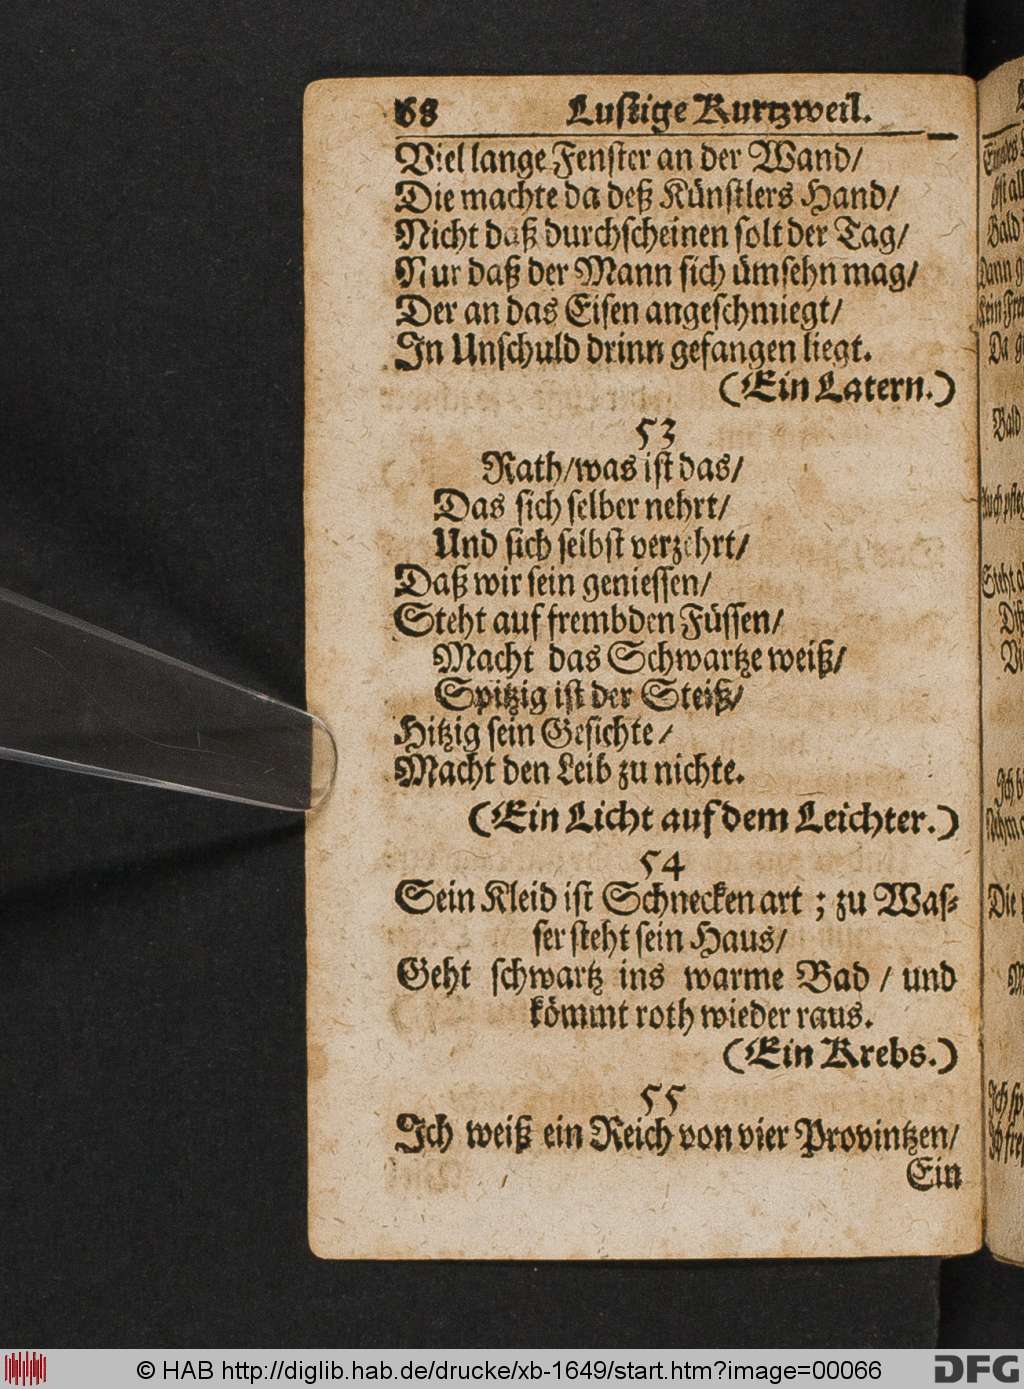 68 Lustige Kurtzweil.
Viel lange Fenster an der Wand/
Die machte da deß Künstlers Hand/
Nicht daß durchscheinen solt der Tag/
Nur daß der Mann sich ümsehn mag/
Der an das Eisen angeschmiegt/
In Unschuld drinn gefangen liegt.
(Ein Latern.)
53
Rath/was ist das/
Das sich selber nehrt/
Und sich selbst verzehrt/
Daß wir sein geniessen/
Steht auf frembden Füssen/
Macht das Schwartze weiß/
Spitzig ist der Steiß/
Hitzig sein Gesichte/
Macht den Leib zu nichte.
(Ein Licht auf dem Leichter.)
54
Sein Kleid ist Schnecken art ; zu Was-
ser steht sein Haus/
Geht schwartz ins warme Bad / und
kömmt roth wieder raus.
(Ein Krebs.)
55
Ich weiß ein Reich von vier Provintzen/
Ein
© HAB http://diglib.hab.de/drucke/xb-1649/start.htm?image=00066
DFG